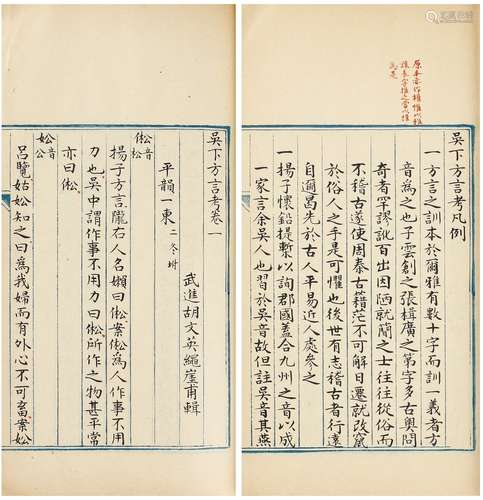 吳下方言考凡例
一方言之訓本於爾雅有數十字而訓一義者方
音爲之也子雲創之張楫廣之第字多古奧問
奇者罕謬訛百出因陋就簡之士往往從俗而
不稽古遂使周秦古籍茫不可解日遷就改竄
於俗人之手是可懼也後世有志稽古者行遠
自邇曷先於古人平易近人處參之
一揚子懷鉛提槧以詢郡國蓋合九州之音以成
一家言余吳人也習於吳音故但註吳音其燕
吳下方言考卷一
武進胡文英繩崖甫輯
平韻一東 二冬坿
倯音松
揚子方言隴右人名嬾曰倯案倯爲人作事不用
力也吳中謂作事不用力曰倯所作之物甚平常
亦曰倯
妐音公
呂覽姑妐知之曰爲我婦而有外心不可畜案妐